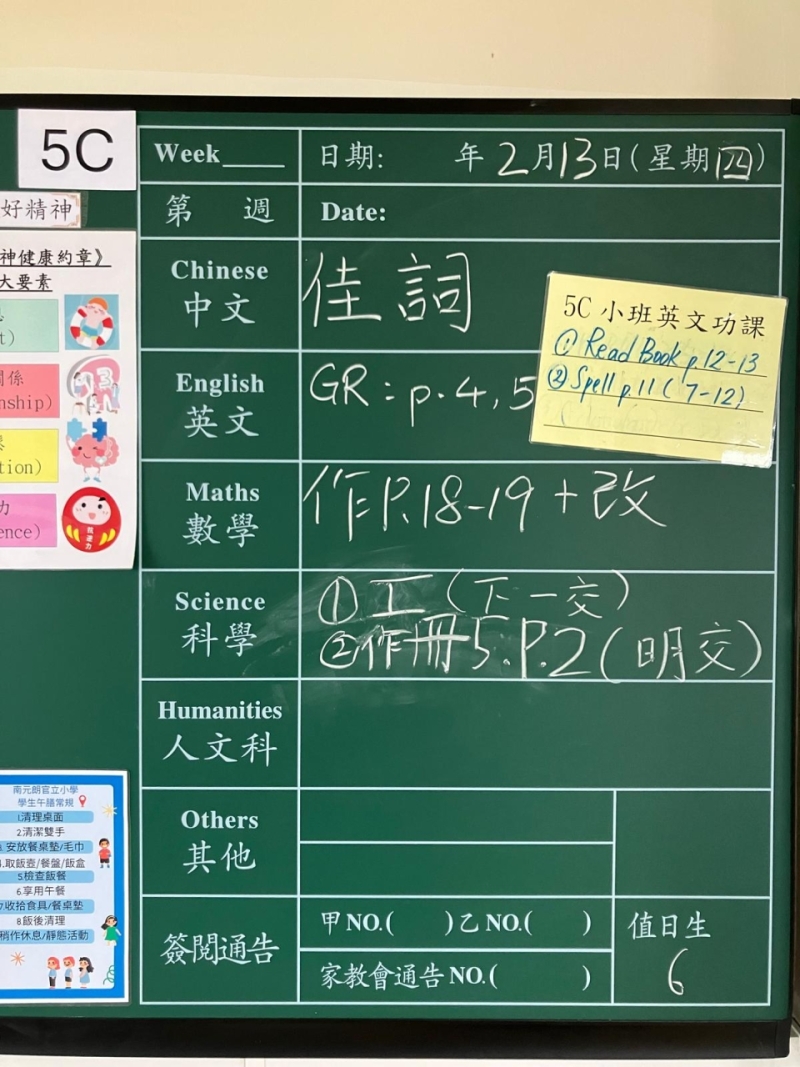 5C
好精神
神健康約章》
大要素
t)
關係
nship)
tion)
力
ence)
Week____ 日期: 年2月13日(星期四)
第 週 Date:
Chinese
中文
佳詞
English
英文
GR: p.4,5
5C 小班英文功課
① Read Book p.12-13
② Spell p.11 ( 7-12)
Maths
數學
作P.18-19 + 改
Science
科學
① 工 (下一交)
②作冊5.P.2 (明交)
Humanities
人文科
Others
其他
簽閱通告
甲NO.( )乙NO.( )
家教會通告NO.( )
值日生
6
南元朗官立小學
學生午膳常規
1.清理桌面
2.清潔雙手
3.安放餐桌墊/毛巾
4.取飯壺/餐盤/飯盒
5檢查飯餐
6.享用午餐
7.收拾食具/餐桌墊
8飯後清理
稍作休息/靜態活動